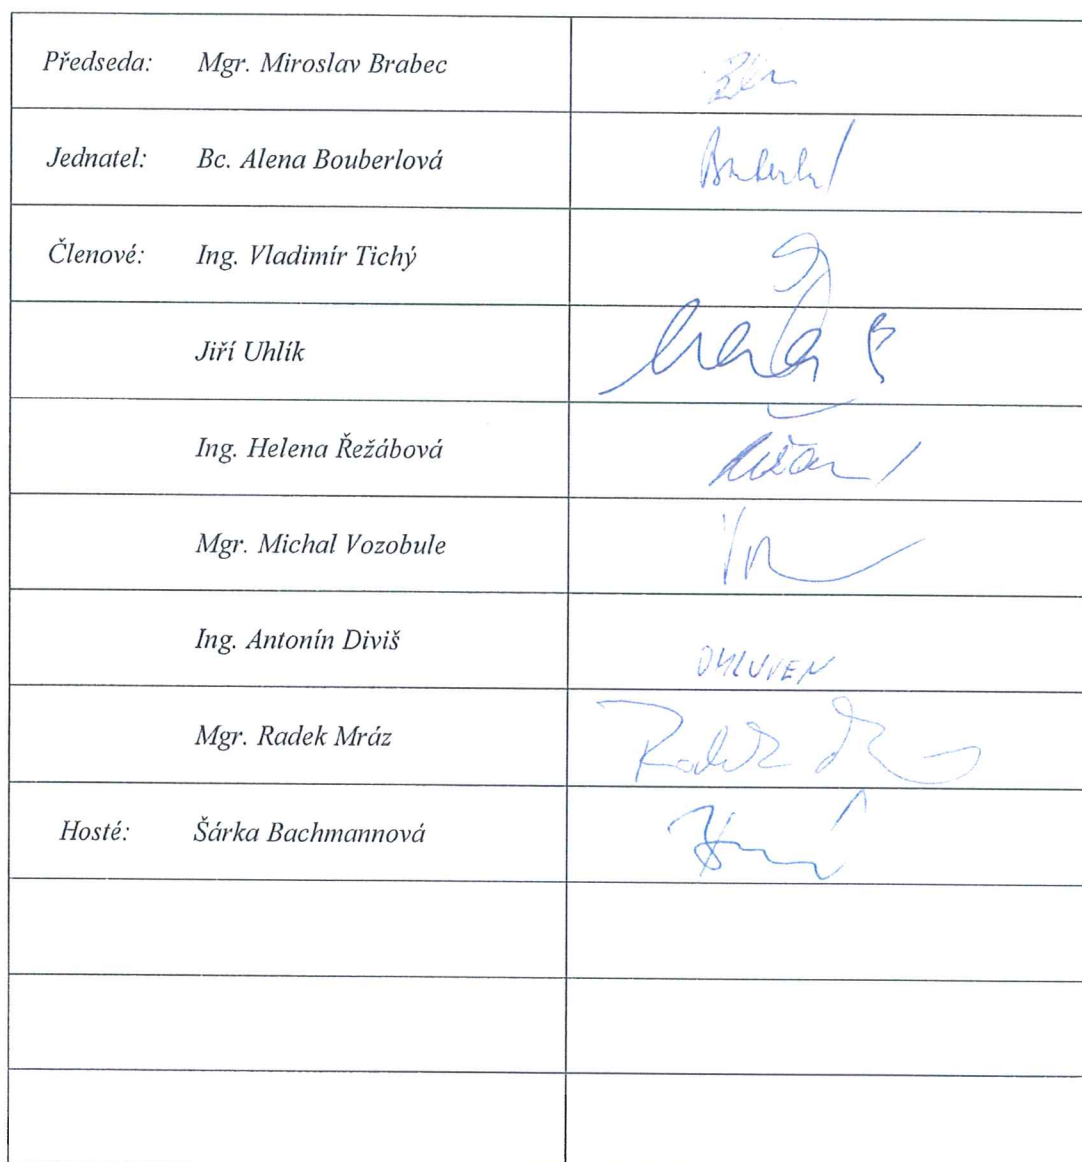 Předseda: Mgr. Miroslav Brabec
Jednatel: Bc. Alena Bouberlová
Členové: Ing. Vladimír Tichý
Jiří Uhlík
Ing. Helena Řežábová
Mgr. Michal Vozobule
Ing. Antonín Diviš OMLUVEN
Mgr. Radek Mráz Radek
Hosté: Šárka Bachmannová